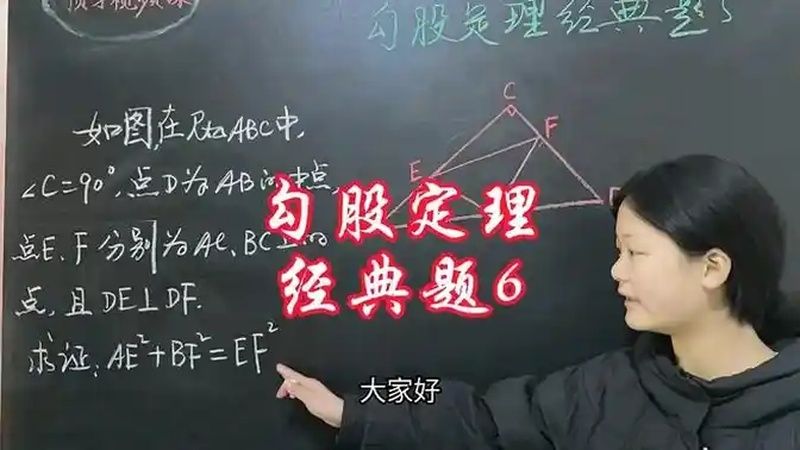 勾股定理经典题5
如图,在Rt△ABC中,
∠C=90°,点D为AB的中点,
点E、F分别为AC、BC上的
点,且DE⊥DF.
求证:AE²+BF²=EF²
C
F
E
勾股定理
经典题6
大家好